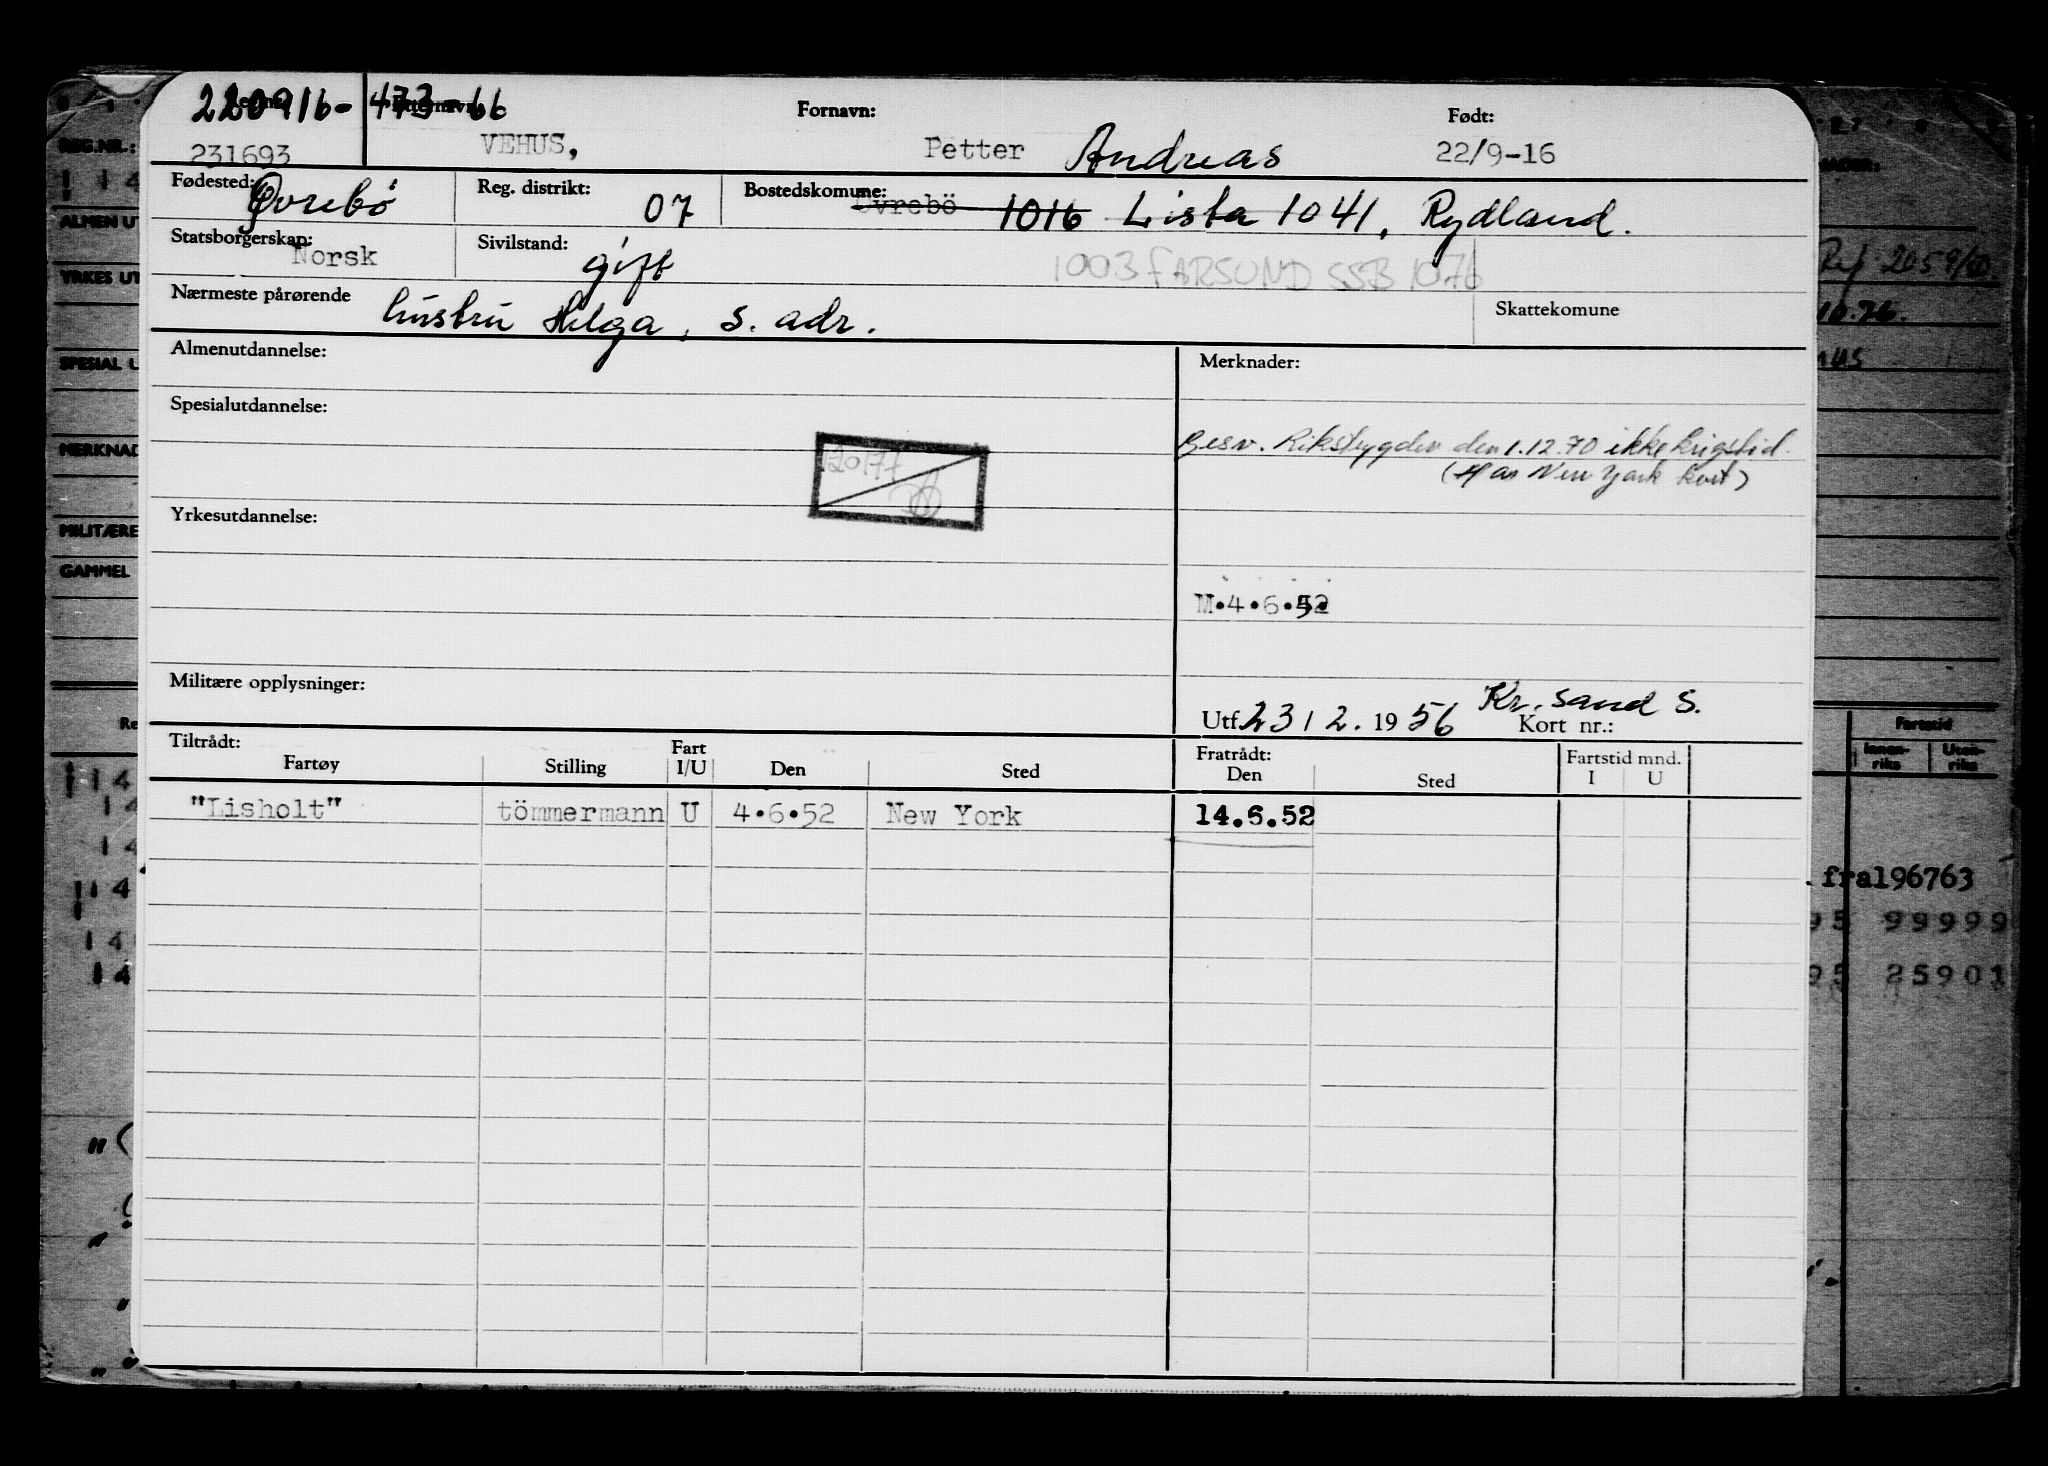 220916- 473-66
Fornavn:
Født:
231693
VEHUS,
Petter Andreas
22/9-16
Fødested: Øvrebø
Reg. distrikt: 07
Bostedskomune: Øvrebö 1016 Lista 1041, Rydland.
Statsborgerskap: Norsk
Sivilstand: gift
1003 FARSUND SSB 1076
Nærmeste pårørende hustru Helga, s. adr.
Skattekomune
Almenutdannelse:
Merknader:
Spesialutdannelse:
Besv. Rikstrygden den 1.12.70 ikke krigstid.
(Har New York kort)
120177
Yrkesutdannelse:
M.4.6.52
Militære opplysninger:
Kr.sand S.
Utf. 23/2. 1956 Kort nr.:
Tiltrådt:
Fratrådt:
Fartstid mnd.
Fartøy Stilling Fart I/U Den Sted Den Sted I U
"Lisholt" tömmermann U 4.6.52 New York 14.6.52
REG.NR.:
ALMEN UT
YRKES UT
SPESIAL U
MERKNAD
MILITÆRE
GAMMEL
10.76.
Fartstid
Innen-riks
Uten-riks
fra196763
95 99999
95 25901